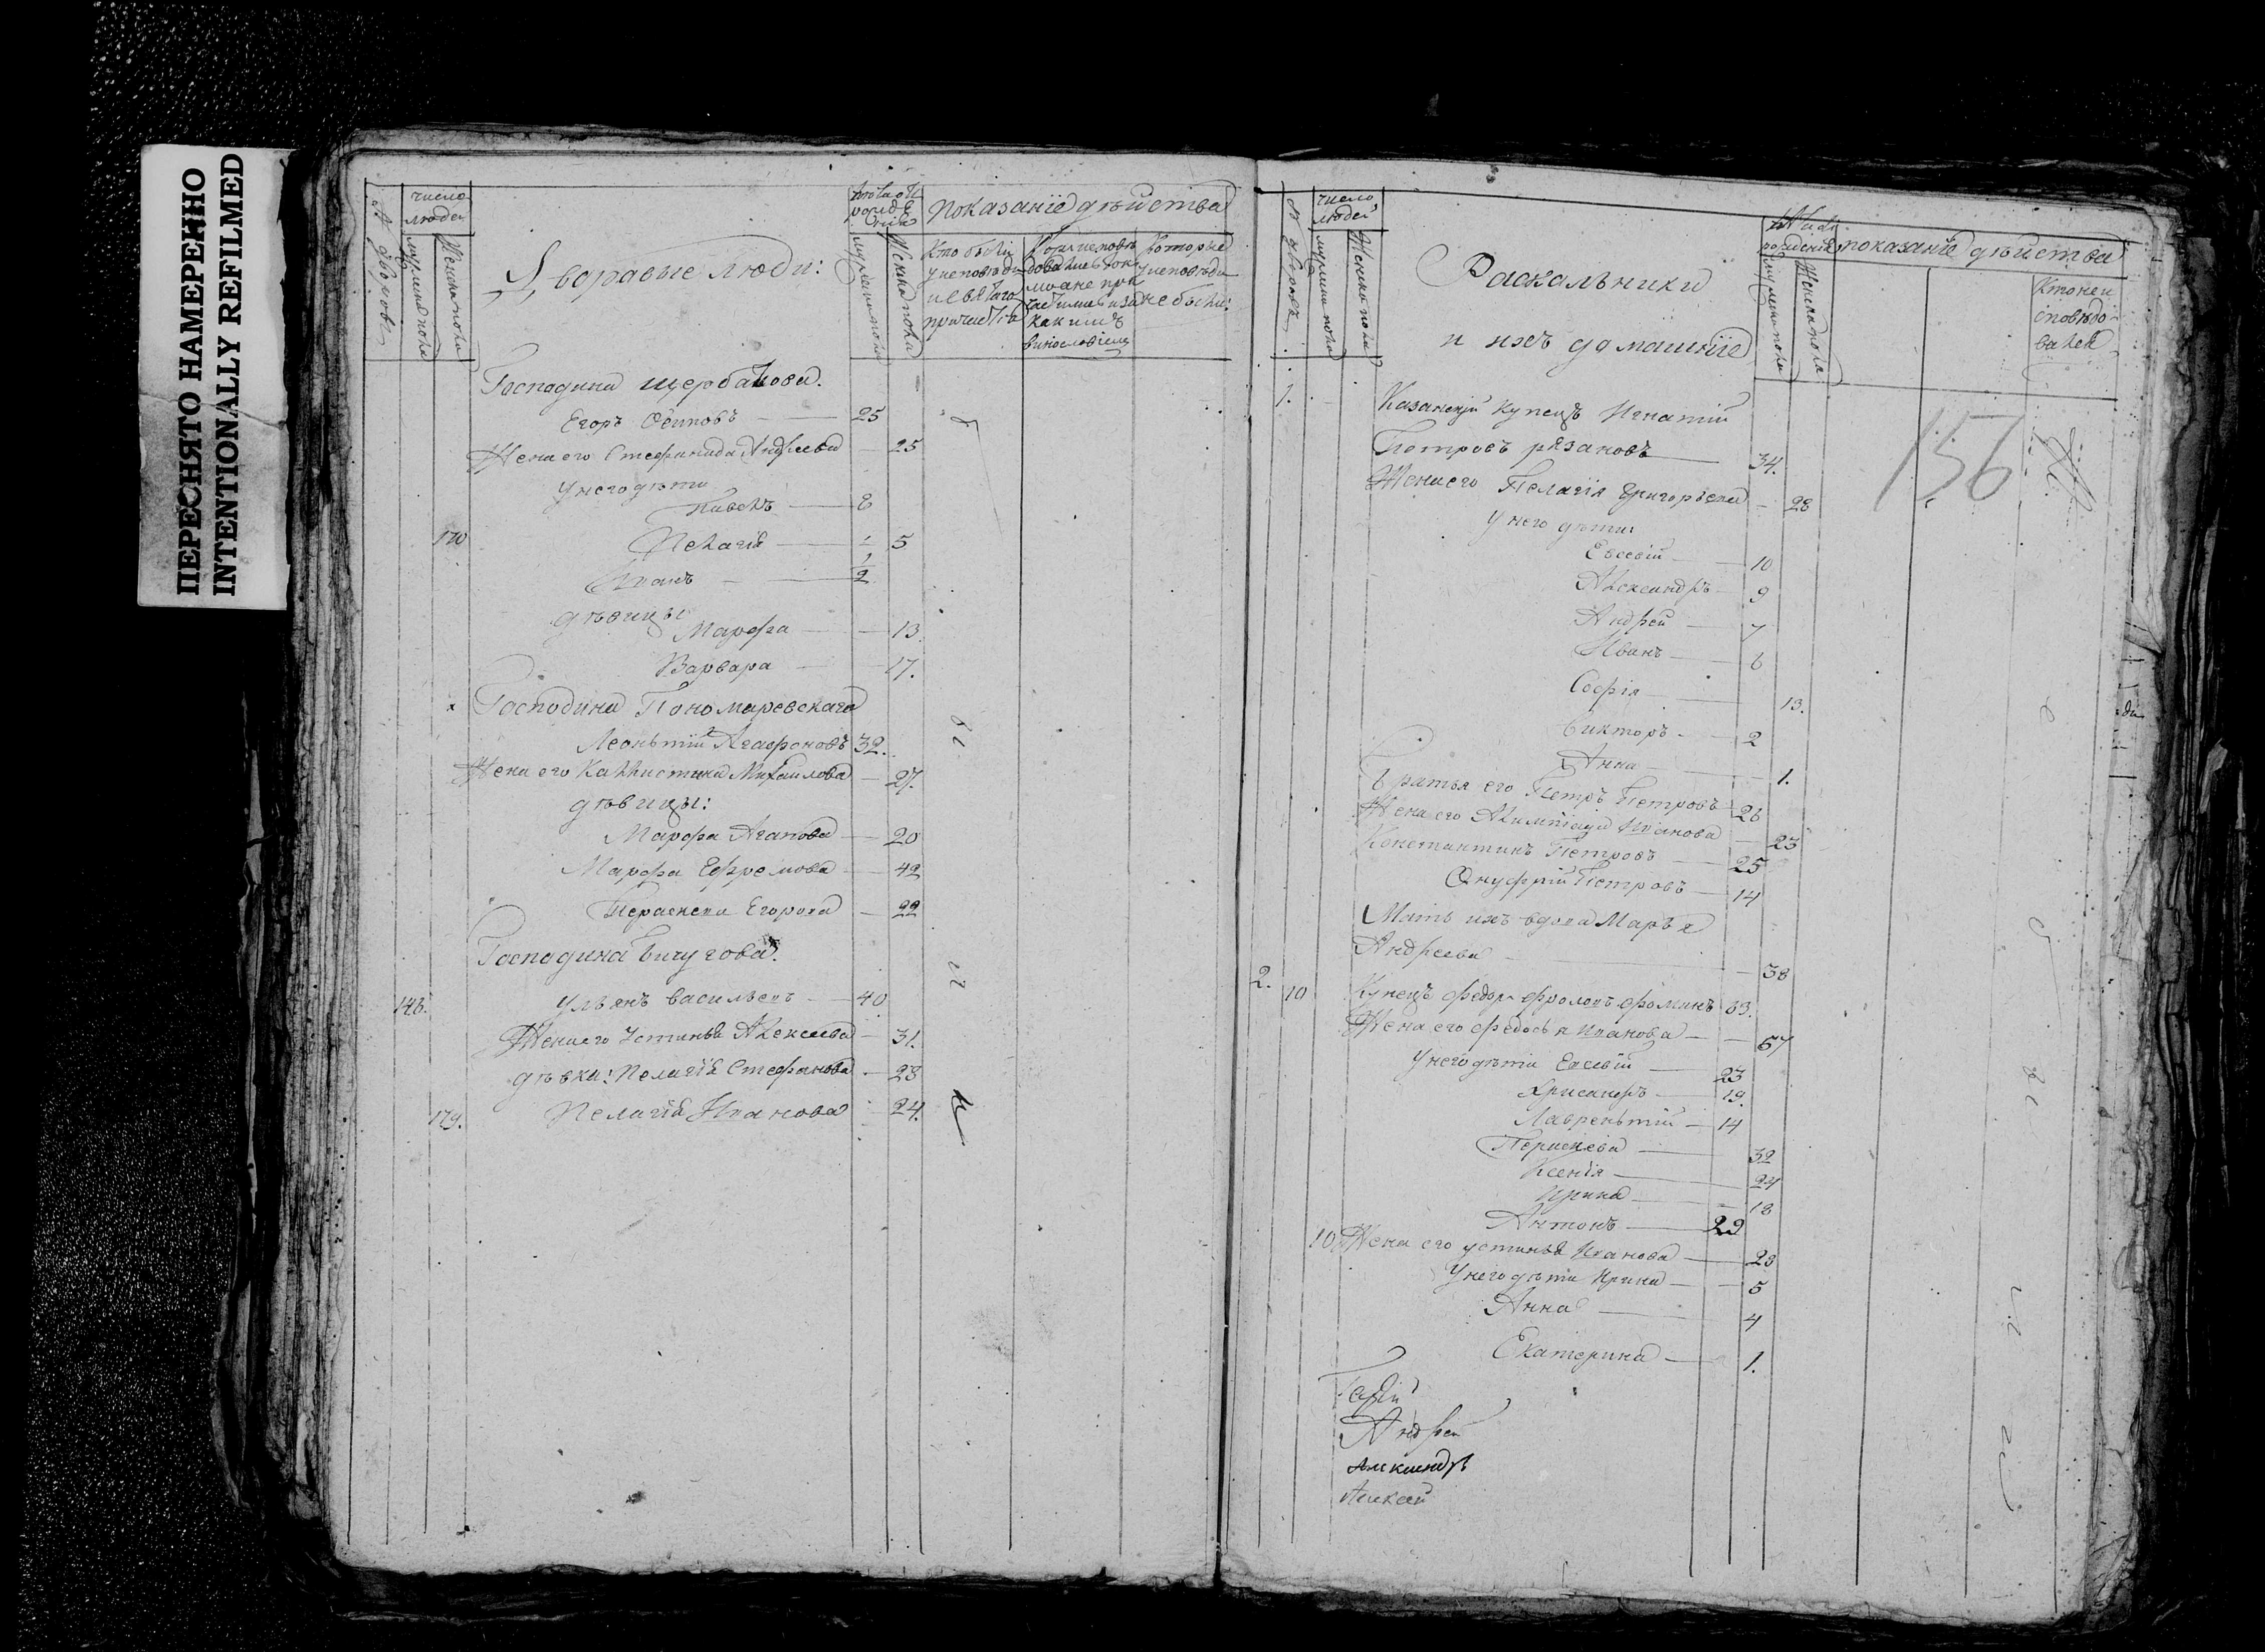 ПЕРЕСНЯТО НАМЕРЕННО
INTENTIONALLY REFILMED
число
людей
мужеска пола
Женска пола
Дворовые люди:
мужеска пола
Женска пола
показаніе дѣйства
Кто были
у исповѣди
и святаго
причастія
Кои исповѣ
довались токмо
а не при
частились и за
какимъ
винословіемъ
Которые
у исповѣди
не были:
Господина Щербакова.
Егоръ Осиповъ — 25
Жена его Стефанида Андреева — 25
у него дѣти
Павелъ — 8
170 Пелагія — 5
Иванъ — 2
дѣвицы
Марфа — 13.
Варвара — 17.
Господина Пономаревскаго
Леоньтій Агафоновъ 32.
Жена его Каллистина Михайлова — 27.
дѣвицы:
Марфа Агапова — 20
Марфа Ефремова — 42
Параскева Егорова — 22
Господина Бичугова.
146. Ульянъ Васильевъ — 40
Жена его Устинья Алексеева — 31.
дѣвки: Пелагія Стефанова — 23
179. Пелагія Иванова — 24.
число
людей
мужеска пола
Женска пола
Раскальники
и ихъ домашніе
мужеска пола
Женска пола
показаніе дѣйства
Кто не и
сповѣдо
вался
156
1. Казанскій купецъ Игнатій
Петровъ рязановъ — 34.
Жена его Пелагія Григорьева — 28
у него дѣти
Евсевій — 10
Александръ — 9
Андрей — 7
Иванъ — 6
Софія — 13.
Викторъ — 2
Анна — 1.
Братья его Петръ Петровъ 26
Жена его Алимпіада Иванова — 23
Константинъ Петровъ — 25
Онуфрій Петровъ — 14
Мать ихъ вдова Марья
Андреева — 58
2. 10 Купецъ Федоръ Фроловъ Фоминъ 63.
Жена его Федосья Иванова — 57
У него дѣти Евсевій — 23
Хрисанфъ — 19.
Лаврентій — 14
Параскева — 32
Ксенія — 24
Ирина — 18
Антонъ — 29
10 Жена его Устинья Иванова — 23
У него дѣти Ирина — 5
Анна — 4
Екатерина — 1.
Андрей
Александръ
Алексей